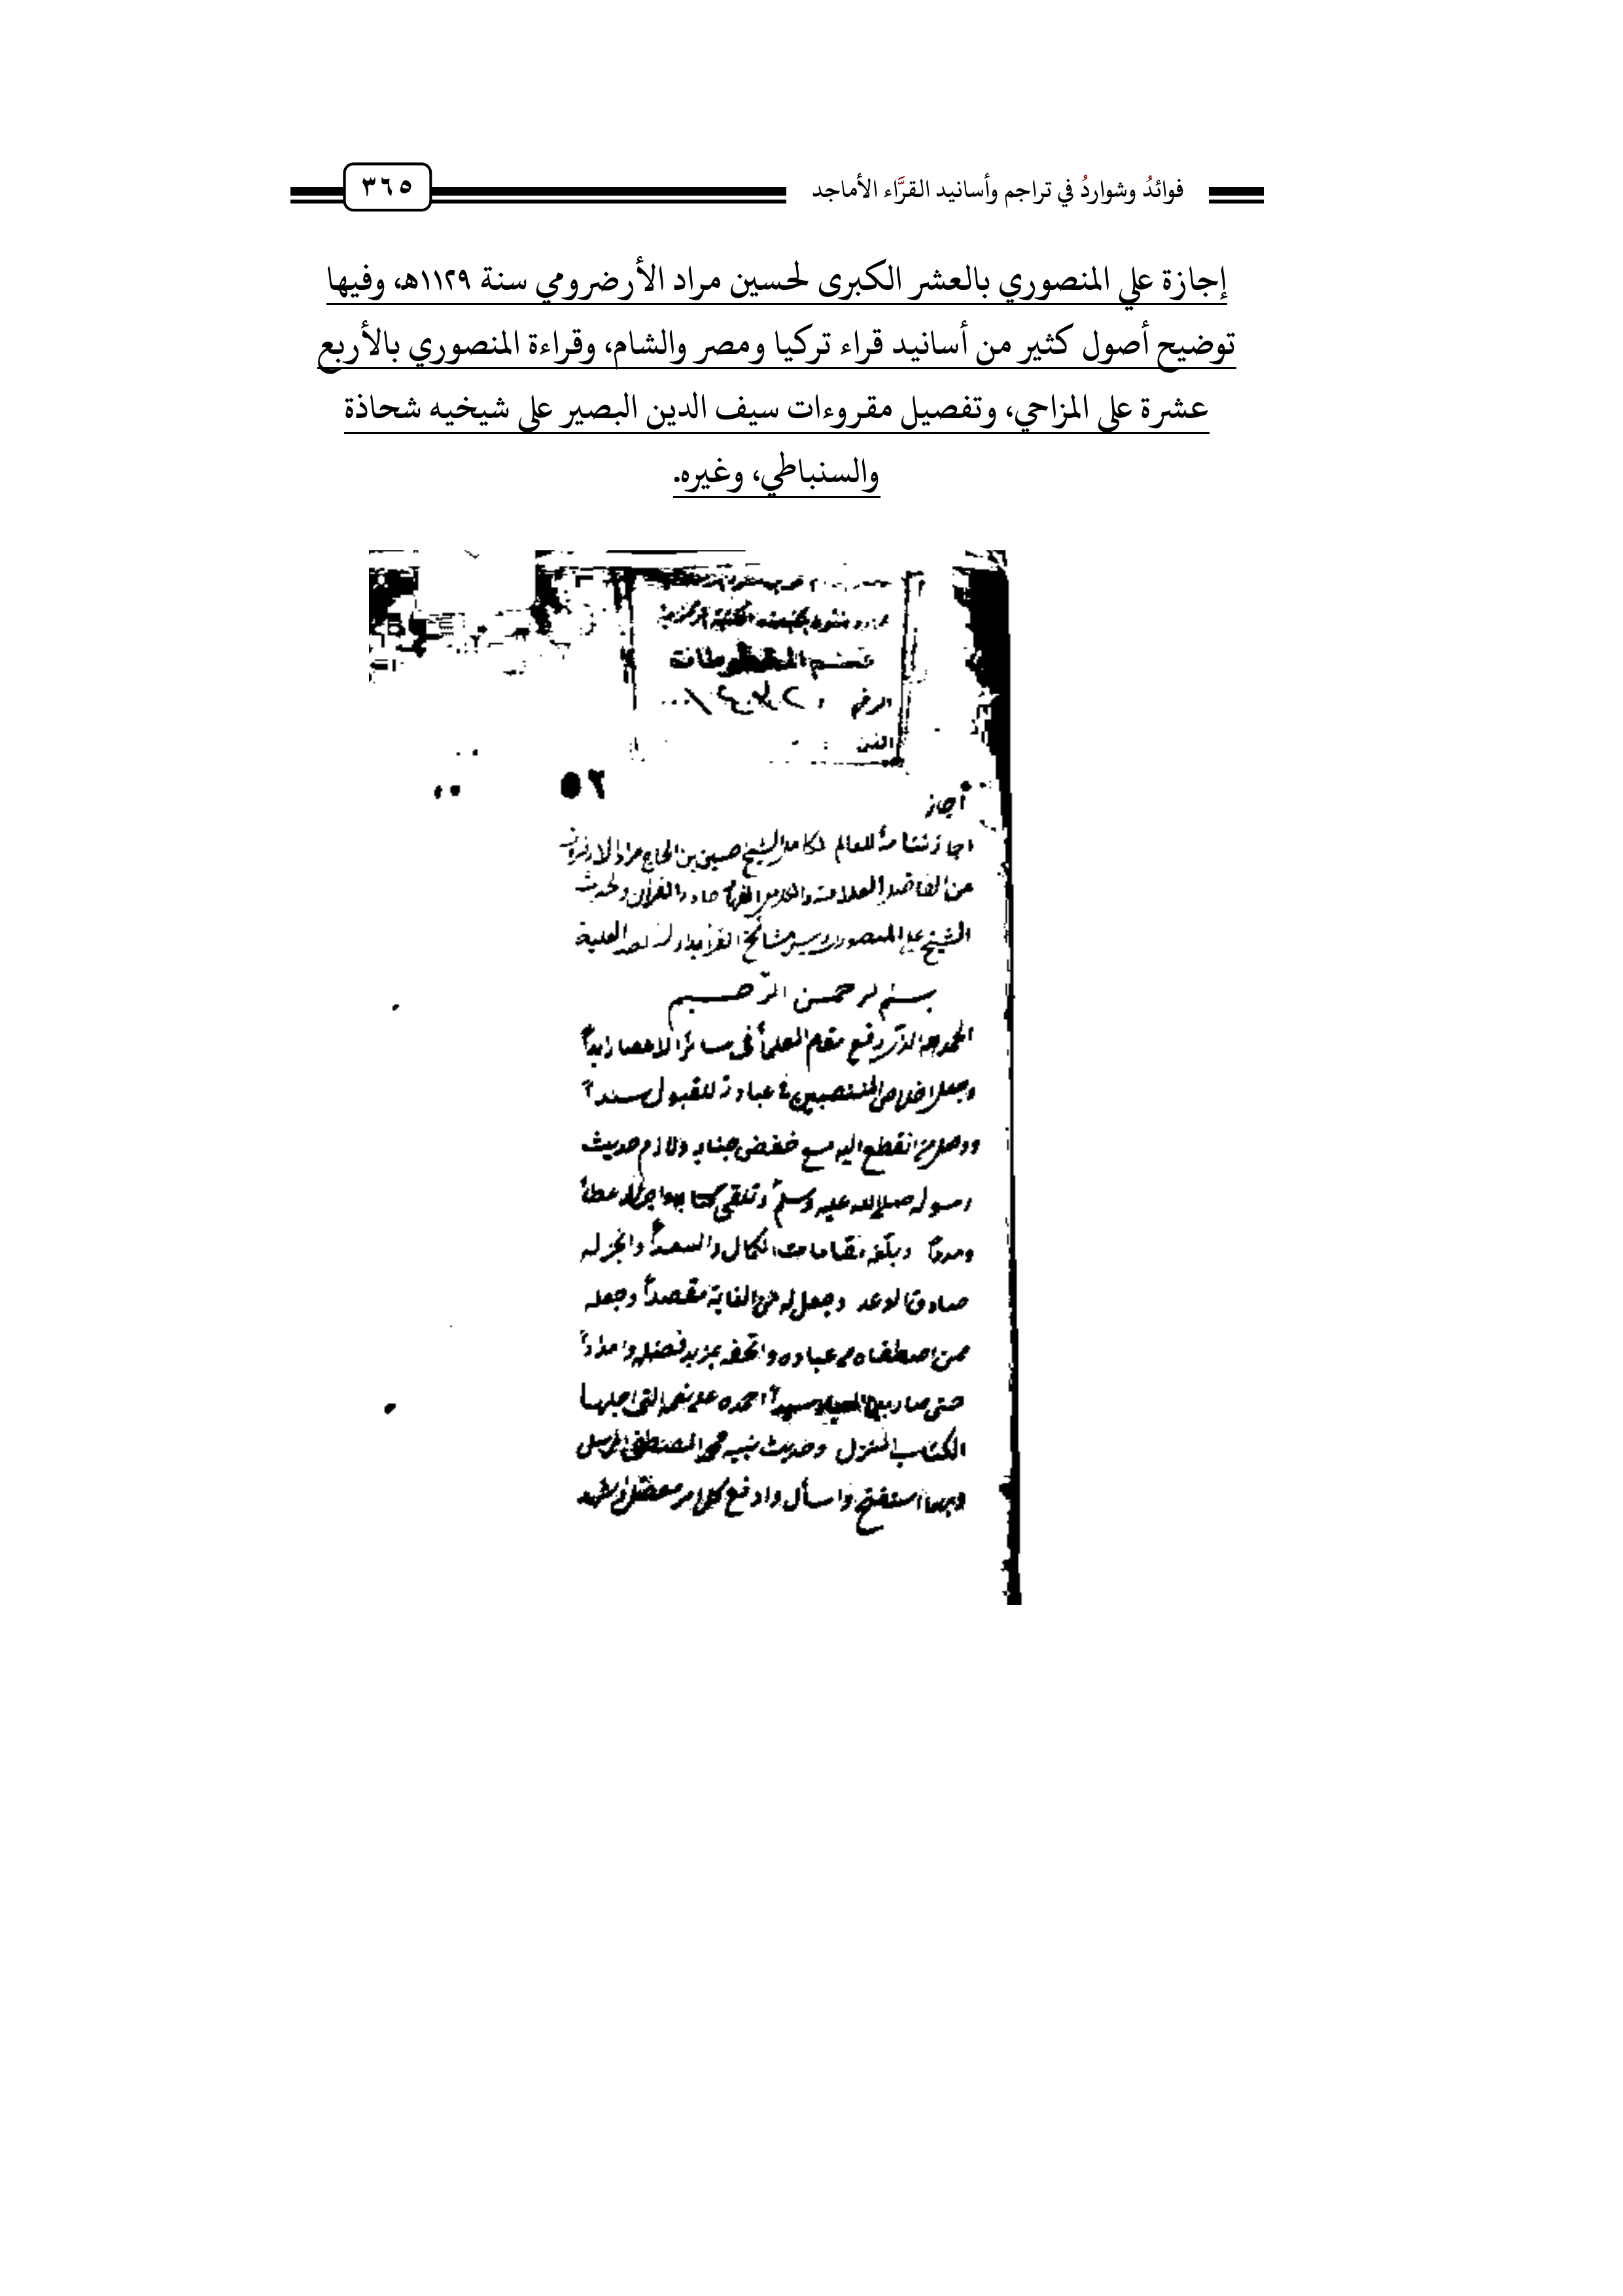 فوائدُ وشواردُ في تراجم وأسانيد القرَّاء الأماجد
٣٦٥
إجازة علي المنصوري بالعشر الكبرى لحسين مراد الأرضرومي سنة ١١٢٩هـ، وفيها
توضيح أصول كثير من أسانيد قراء تركيا ومصر والشام، وقراءة المنصوري بالأربع
عشرة على المزاحي، وتفصيل مقروءات سيف الدين البصير على شيخيه شحاذة
والسنباطي، وغيره.
قسم المخطوطات
الرقم
الفن
٥٢
أجاز
الشيخ حسين بن الحاج مراد
من الفاضل العلامة
الشيخ علي المنصوري مشائخ
بسم الرحمن الرحيم
الحمد لله الذي رفع مقام العلماء في سائر الاعصار ابدا
وجعل اخلاص المنتصبين في عبادته للقبول سندا
ووصل من انقطع اليه مع خفض جنابه ولازم حديث
رسوله صلى الله عليه وسلم وتلقى كتابه
ومددا وبلغه مقامات الكمال والسعدا وانجز له
صادق الوعد وجعل له من الغاية مقصدا وجعله
ممن اصطفاه من عباده واتحفه بمزيد فضله وامدادا
حتى صار احمده على نعمه التي اجلها
الكتاب المنزل وحديث نبيه محمد المصطفى المرسل
وبهما استفتح واسأل وادفع كل امر معضل